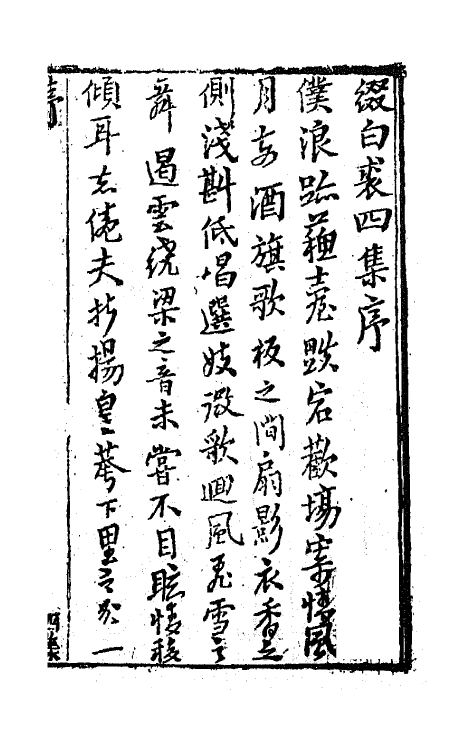 綴白裘四集序
僕浪跡蘓臺跌宕歡塲寄情風
月每酒旗歌板之間扇影衣香之
側淺斟低唱選妓徵歌迴風飛雪之
舞遏雲繞梁之音未嘗不目眩情移
傾耳忘倦夫折揚皇荂下里之
序